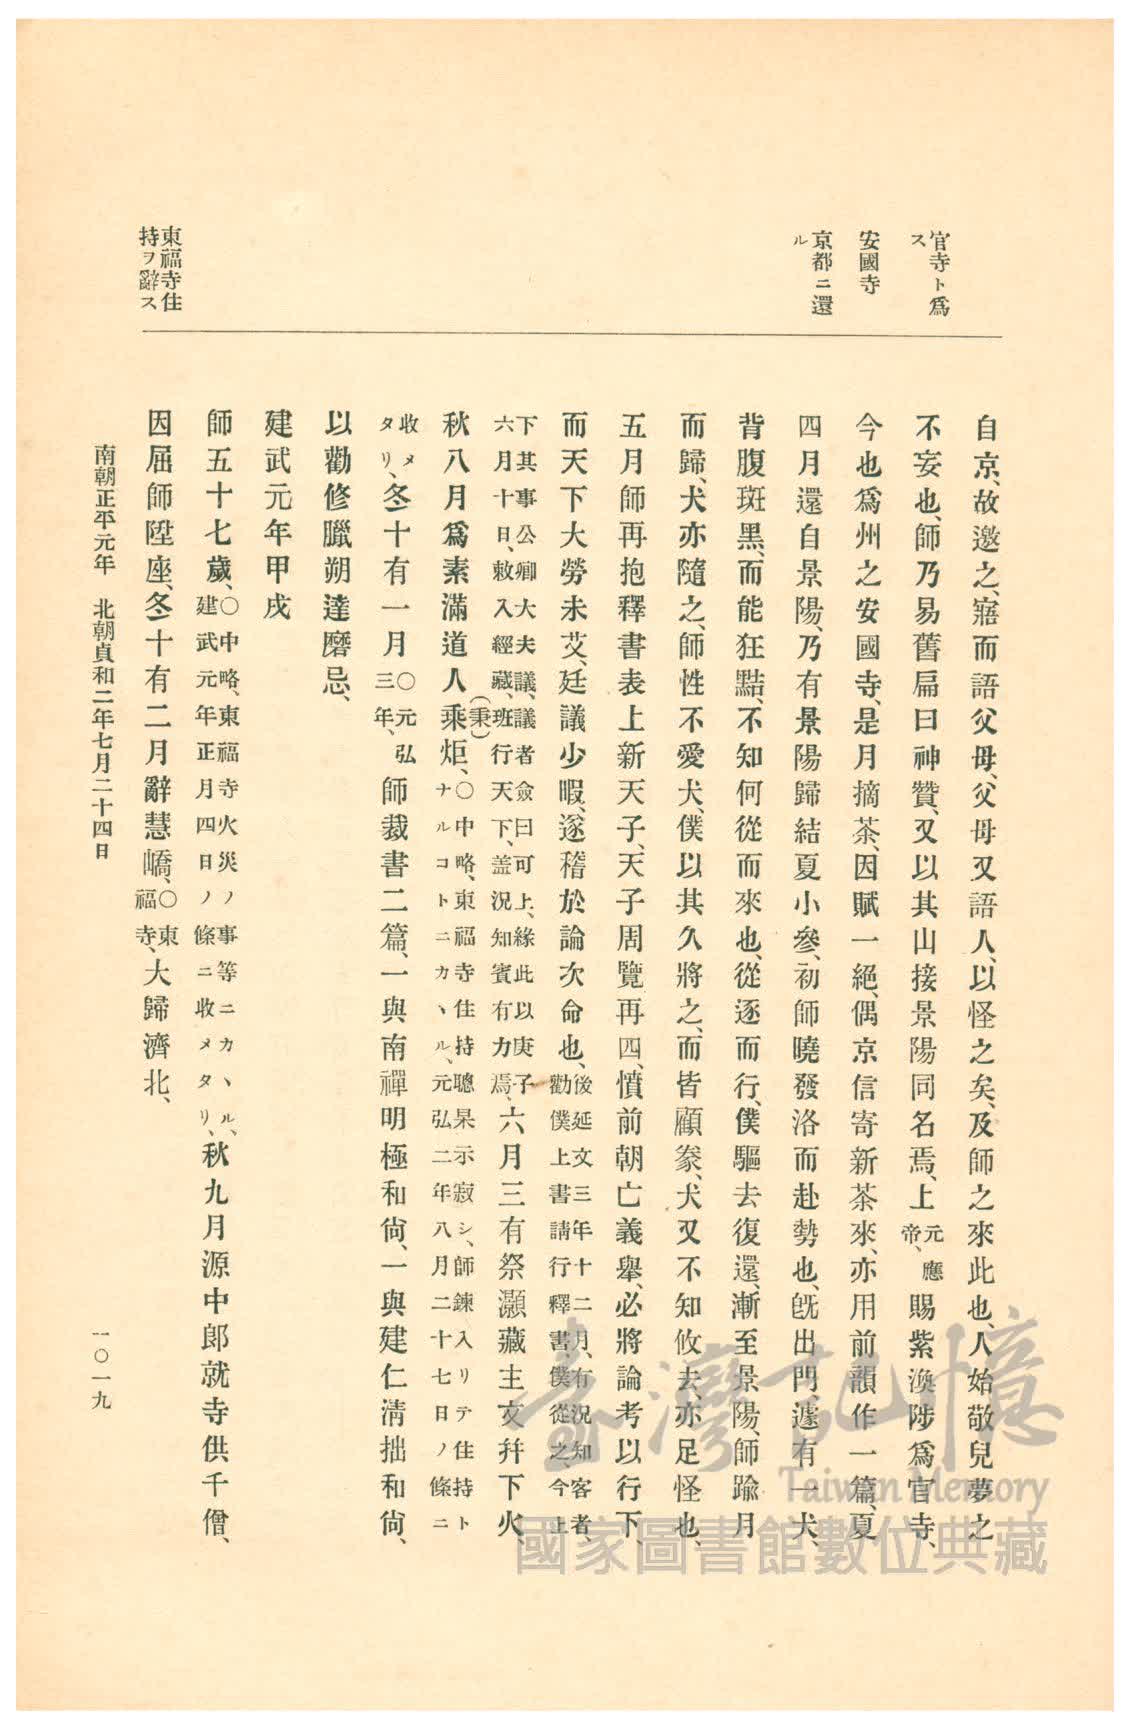 官寺ト爲
ス
安國寺
京都ニ還
ル
東福寺住
持ヲ辭ス
自京、故邀之、寤而語父母、父母又語人、以怪之矣、及師之來此也、人始敬兒夢之
不妄也、師乃易舊扁曰神贊、又以其山接景陽同名焉、上元應帝、賜紫渙陟爲官寺、
今也爲州之安國寺、是月摘茶、因賦一絕、偶京信寄新茶來、亦用前韻作一篇、夏
四月還自景陽、乃有景陽歸結夏小參、初師曉發洛而赴勢也、旣出門、遽有一犬、
背腹斑黑、而能狂黠、不知何從而來也、從逐而行、僕驅去復還、漸至景陽、師踰月
而歸、犬亦隨之、師性不愛犬、僕以其久將之、而皆顧豢、犬又不知攸去、亦足怪也、
五月師再抱釋書表上新天子、天子周覽再四、憤前朝亡義舉、必將論考以行下、
而天下大勞未艾、廷議少暇、遂稽於論次命也、後延文三年十二月、有況知客者、勸僕上書請行釋書、僕從之、今上
下其事公卿大夫議、議者僉曰可上、緣此以庚子六月十日、敕入經藏、班行天下、盖況知賓有力焉、六月三有祭灝藏主文幷下火、
秋八月爲素滿道人乘(秉)炬、〇中略、東福寺住持聰杲示寂シ、師鍊入リテ住持トナルコトニカヽル、元弘二年八月二十七日ノ條ニ
收メタリ、冬十有一月〇元弘三年、師裁書二篇、一與南禪明極和尙、一與建仁淸拙和尙、
以勸修臘朔達磨忌、
建武元年甲戌
師五十七歲、〇中略、東福寺火災ノ事等ニカヽル、建武元年正月四日ノ條ニ收メタリ、秋九月源中郞就寺供千僧、
因屈師陞座、冬十有二月辭慧嶠、〇東福寺、大歸濟北、
南朝正平元年　北朝貞和二年七月二十四日
一〇一九
臺灣記憶
Taiwan Memory
國家圖書館數位典藏